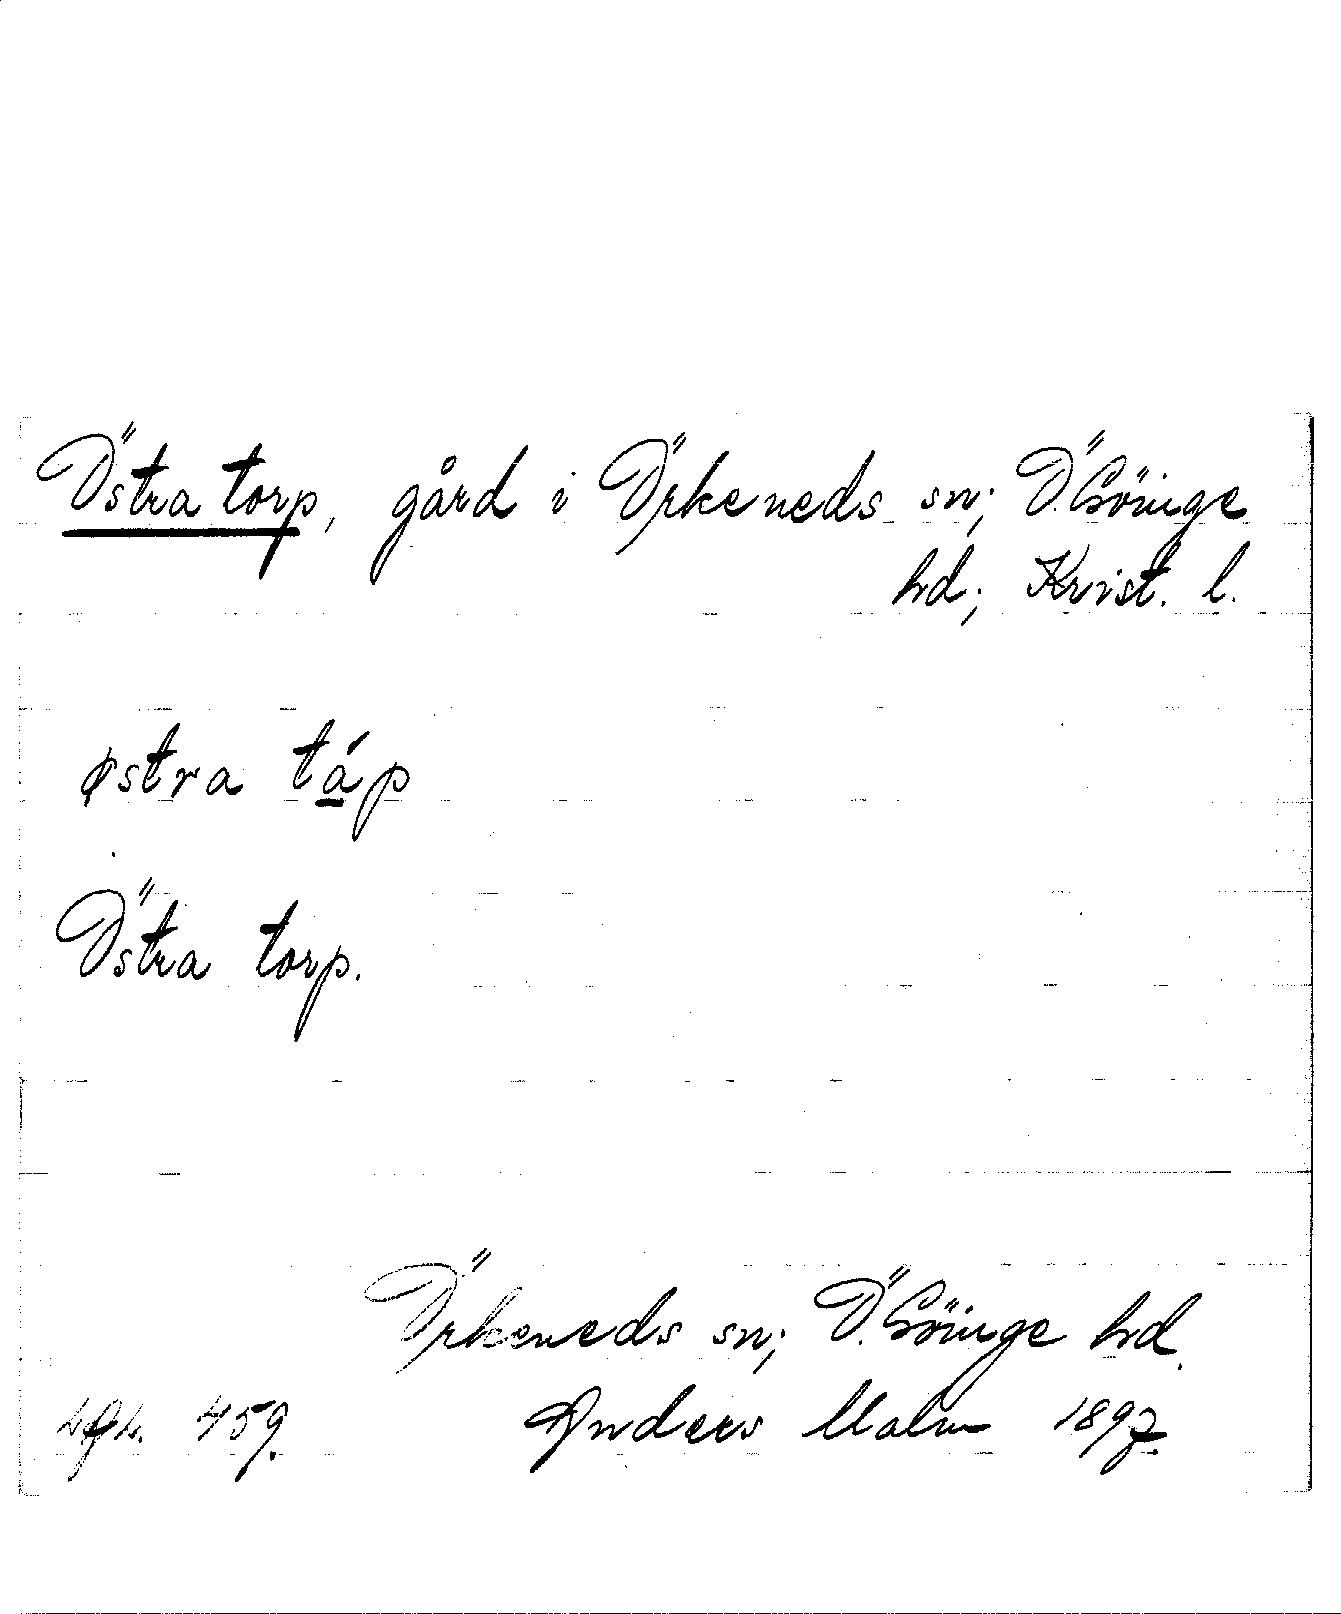 Östra torp, gård i Örkeneds sn; Ö. Göinge
hd; Krist. l.
østra tá̱p
Östra torp.
Örkeneds sn; Ö. Göinge hd.
459. Anders Malm 1897.